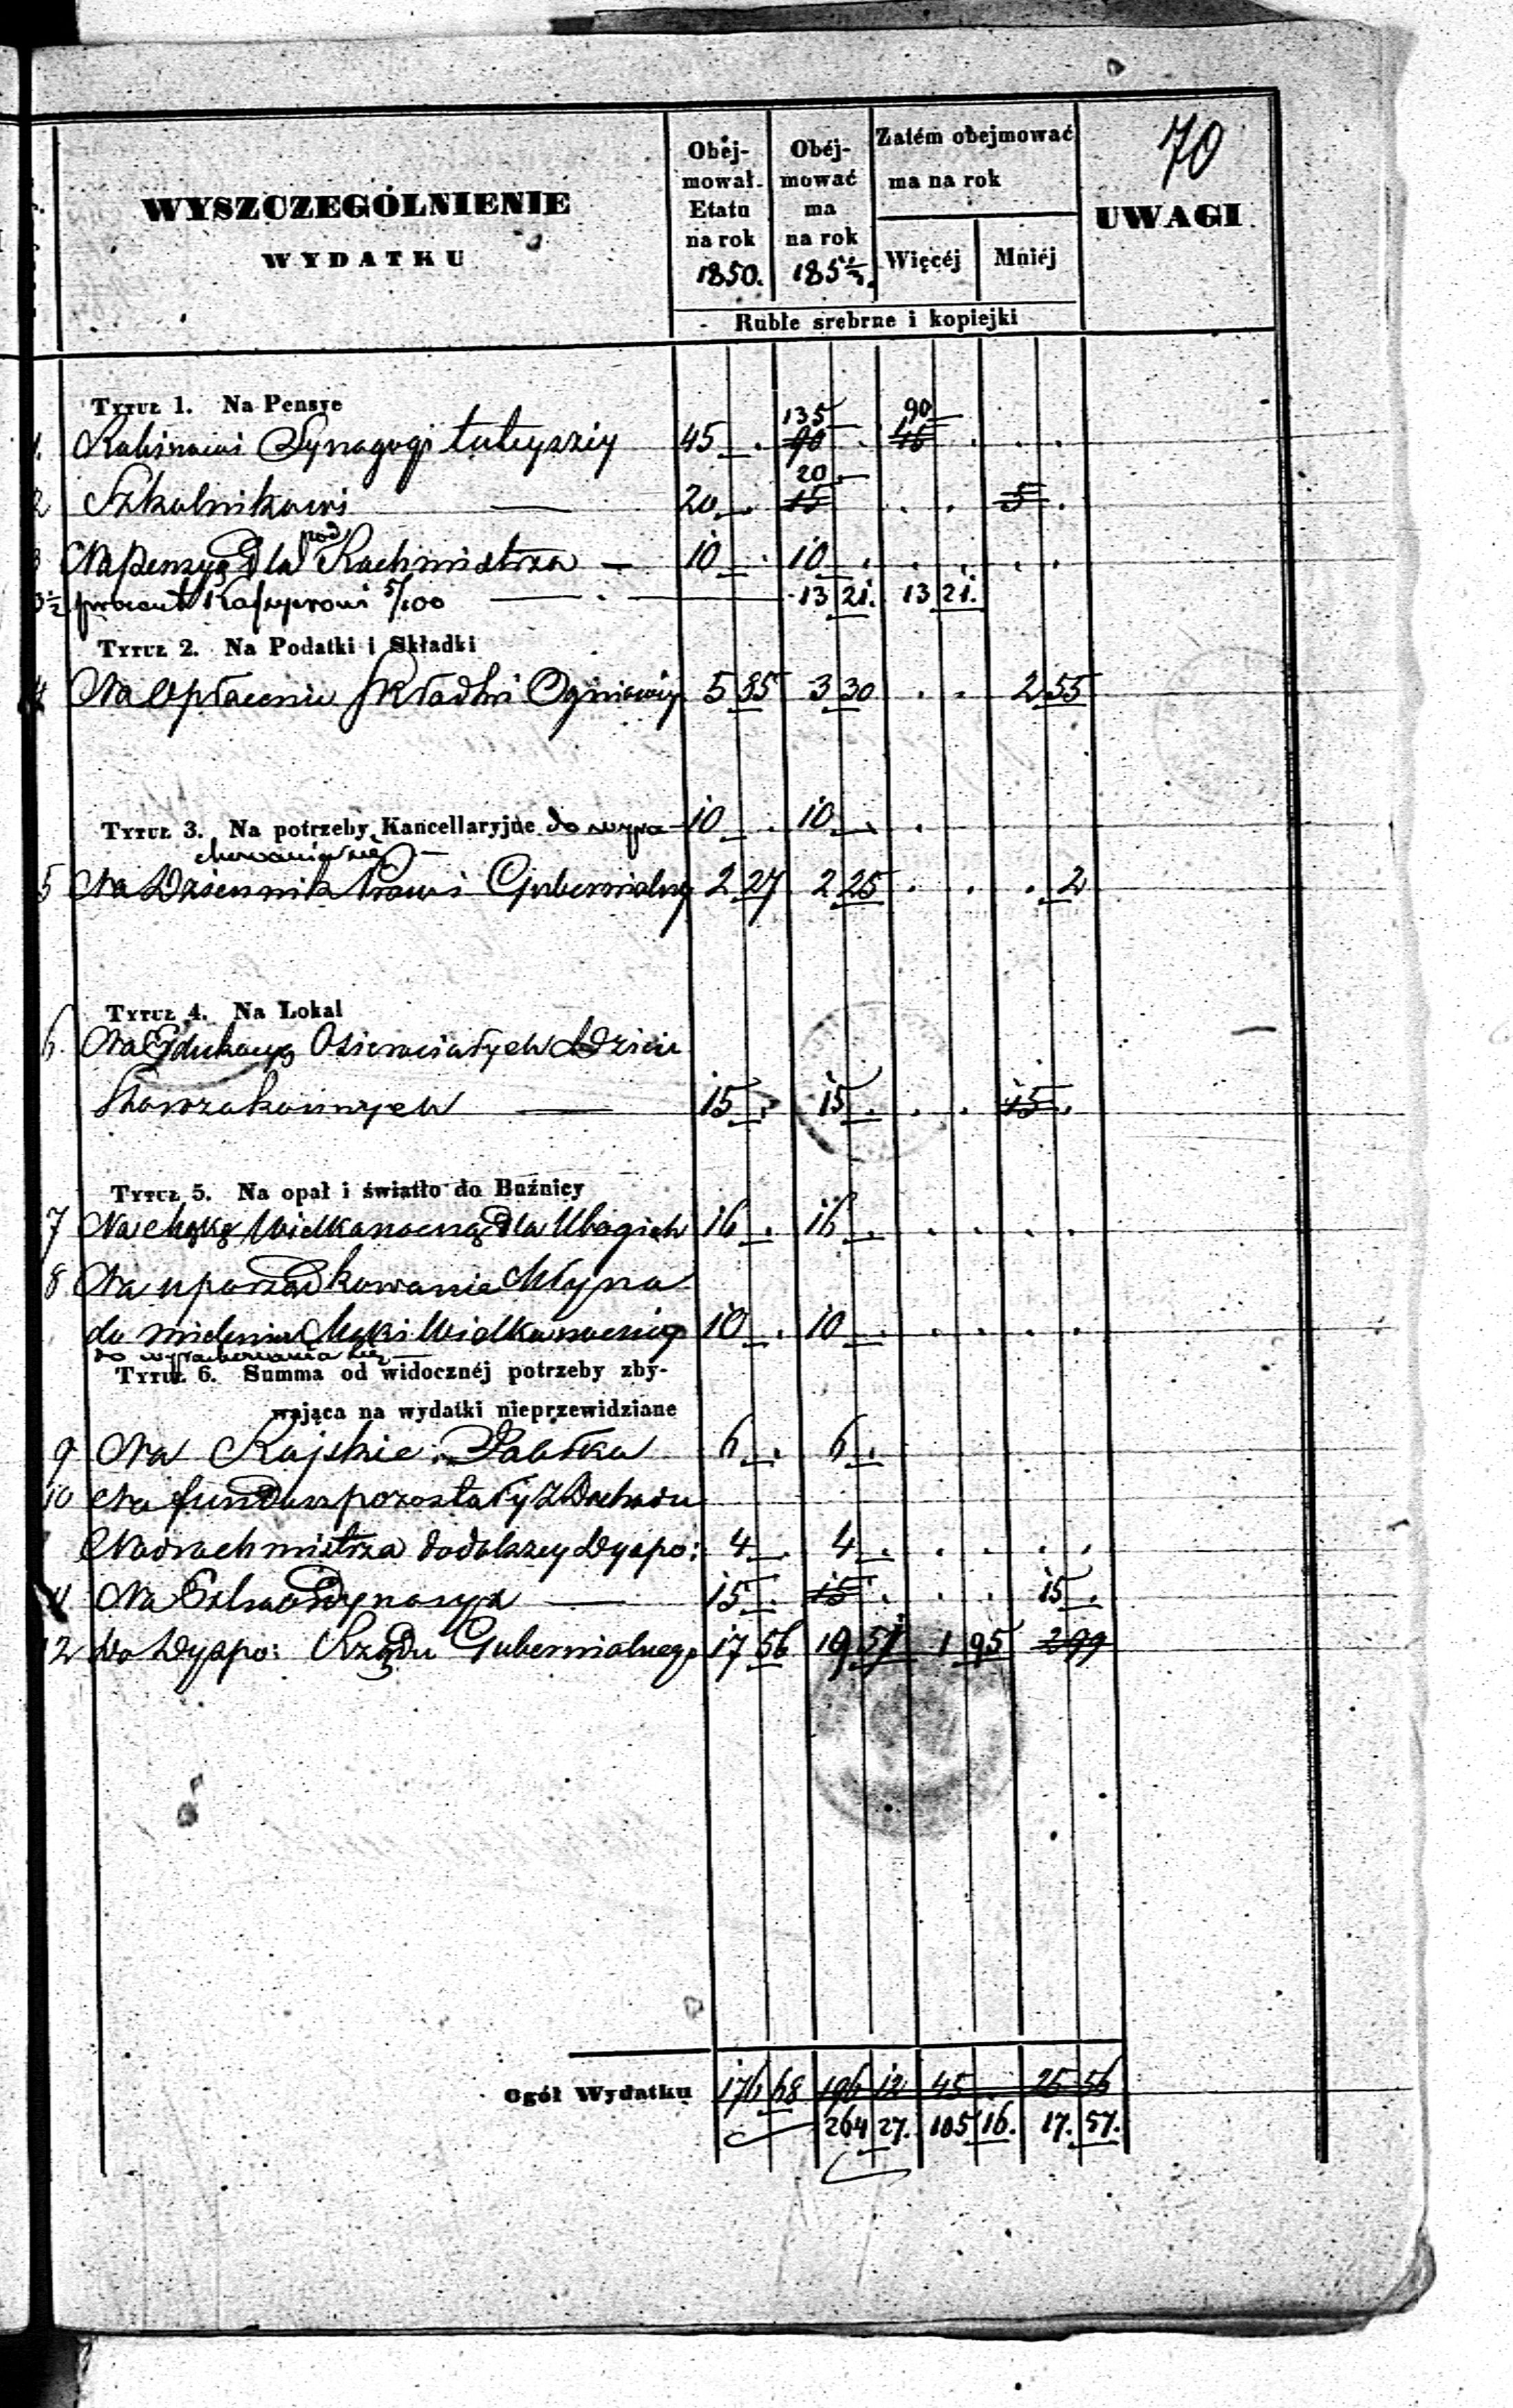 70
WYSZCZEGÓLNIENIE
WYDATKU
Obej-
mował
Etatu
na rok
1850.
Obéj-
mować
ma
na rok
185
Zatém obejmować
ma na rok
Więcéj
Mniéj
UWAGI
Ruble srebrne i kopiejki
Tytuł 1. Na Pensye
135 90
1. Rabinowi Synagogi tuteyszey 45 90 45
20
2 Szkolnikowi 20 15 5
pod
3 Na pensyą dla Rachmistrza 10 10
3½ procent Kassyerowi 5/100 13 21. 13 21.
Tytuł 2. Na Podatki i Składki
4 Na opłacenie składki Ogniowey 5 85 3 30 2 55
Tytuł 3. Na potrzeby Kancellaryjne do wyra- 10 10
chowania się
5 Na Dziennik Praw i Gubernialny 2 27 2 25 2
Tytuł 4. Na Lokal
6. Na Edukacyą Osierociałych Dzieci
Starozakonnych 15 15 15
Tytuł 5. Na opał i światło do Buźnicy
7 Na mąkę Wielkanocną dla Ubogich 16 16
8 Na uporządkowanie Młyna
do mielenia Mąki Wielkanocney 10 10
do wyrachowania się
Tytuł 6. Summa od widocznéj potrzeby zby-
wająca na wydatki nieprzewidziane
9 Na Rajskie Jabłka 6 6
10 Na fundusz pozostały z Dochodu
Nadrachmistrza do dalszey Dyspo: 4 4
11 Na Extraordynarya 15 15 15
12 Do Dyspo: Rządu Gubernialnego 17 56 19 51 1 95 2 99
Ogół Wydatku 176 68 196 12 45 25 56
264 27. 105 16. 17. 57.